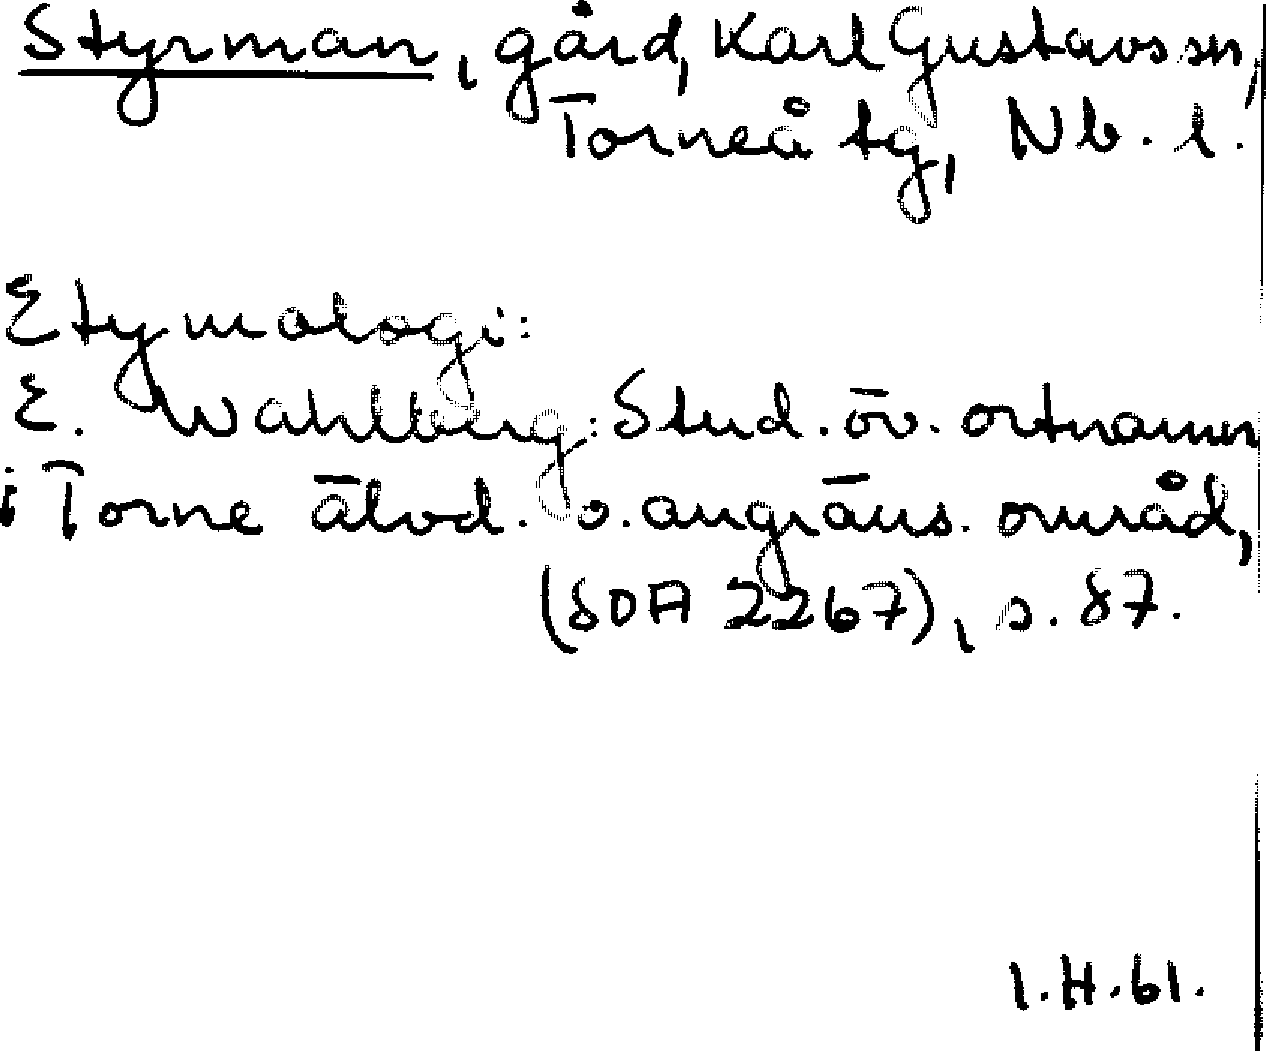 Styrman, gård, Karl Gustavs sn,
Torneå tg, Nb. l.
Etymologi:
E. Wahlberg: Stud. öv. ortnamn
i Torne älvd. o. angräns. områd,
(SOA 2267), s. 87.
I.H.61.